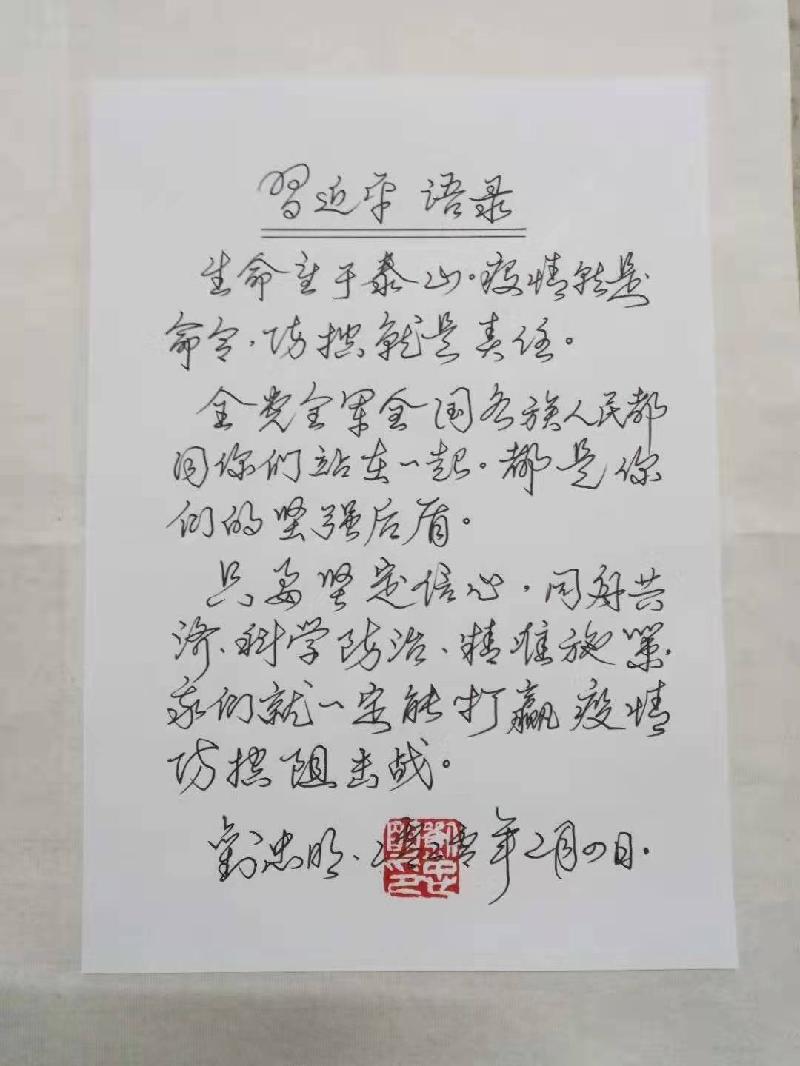 習近平 语录
生命重于泰山。疫情就是
命令，防控就是责任。
全党全军全国各族人民都
同你们站在一起。都是你
们的坚强后盾。
只要坚定信心，同舟共
济、科学防治、精准施策，
我们就一定能打赢疫情
防控阻击战。
劉忠明、二零二零年2月四日.